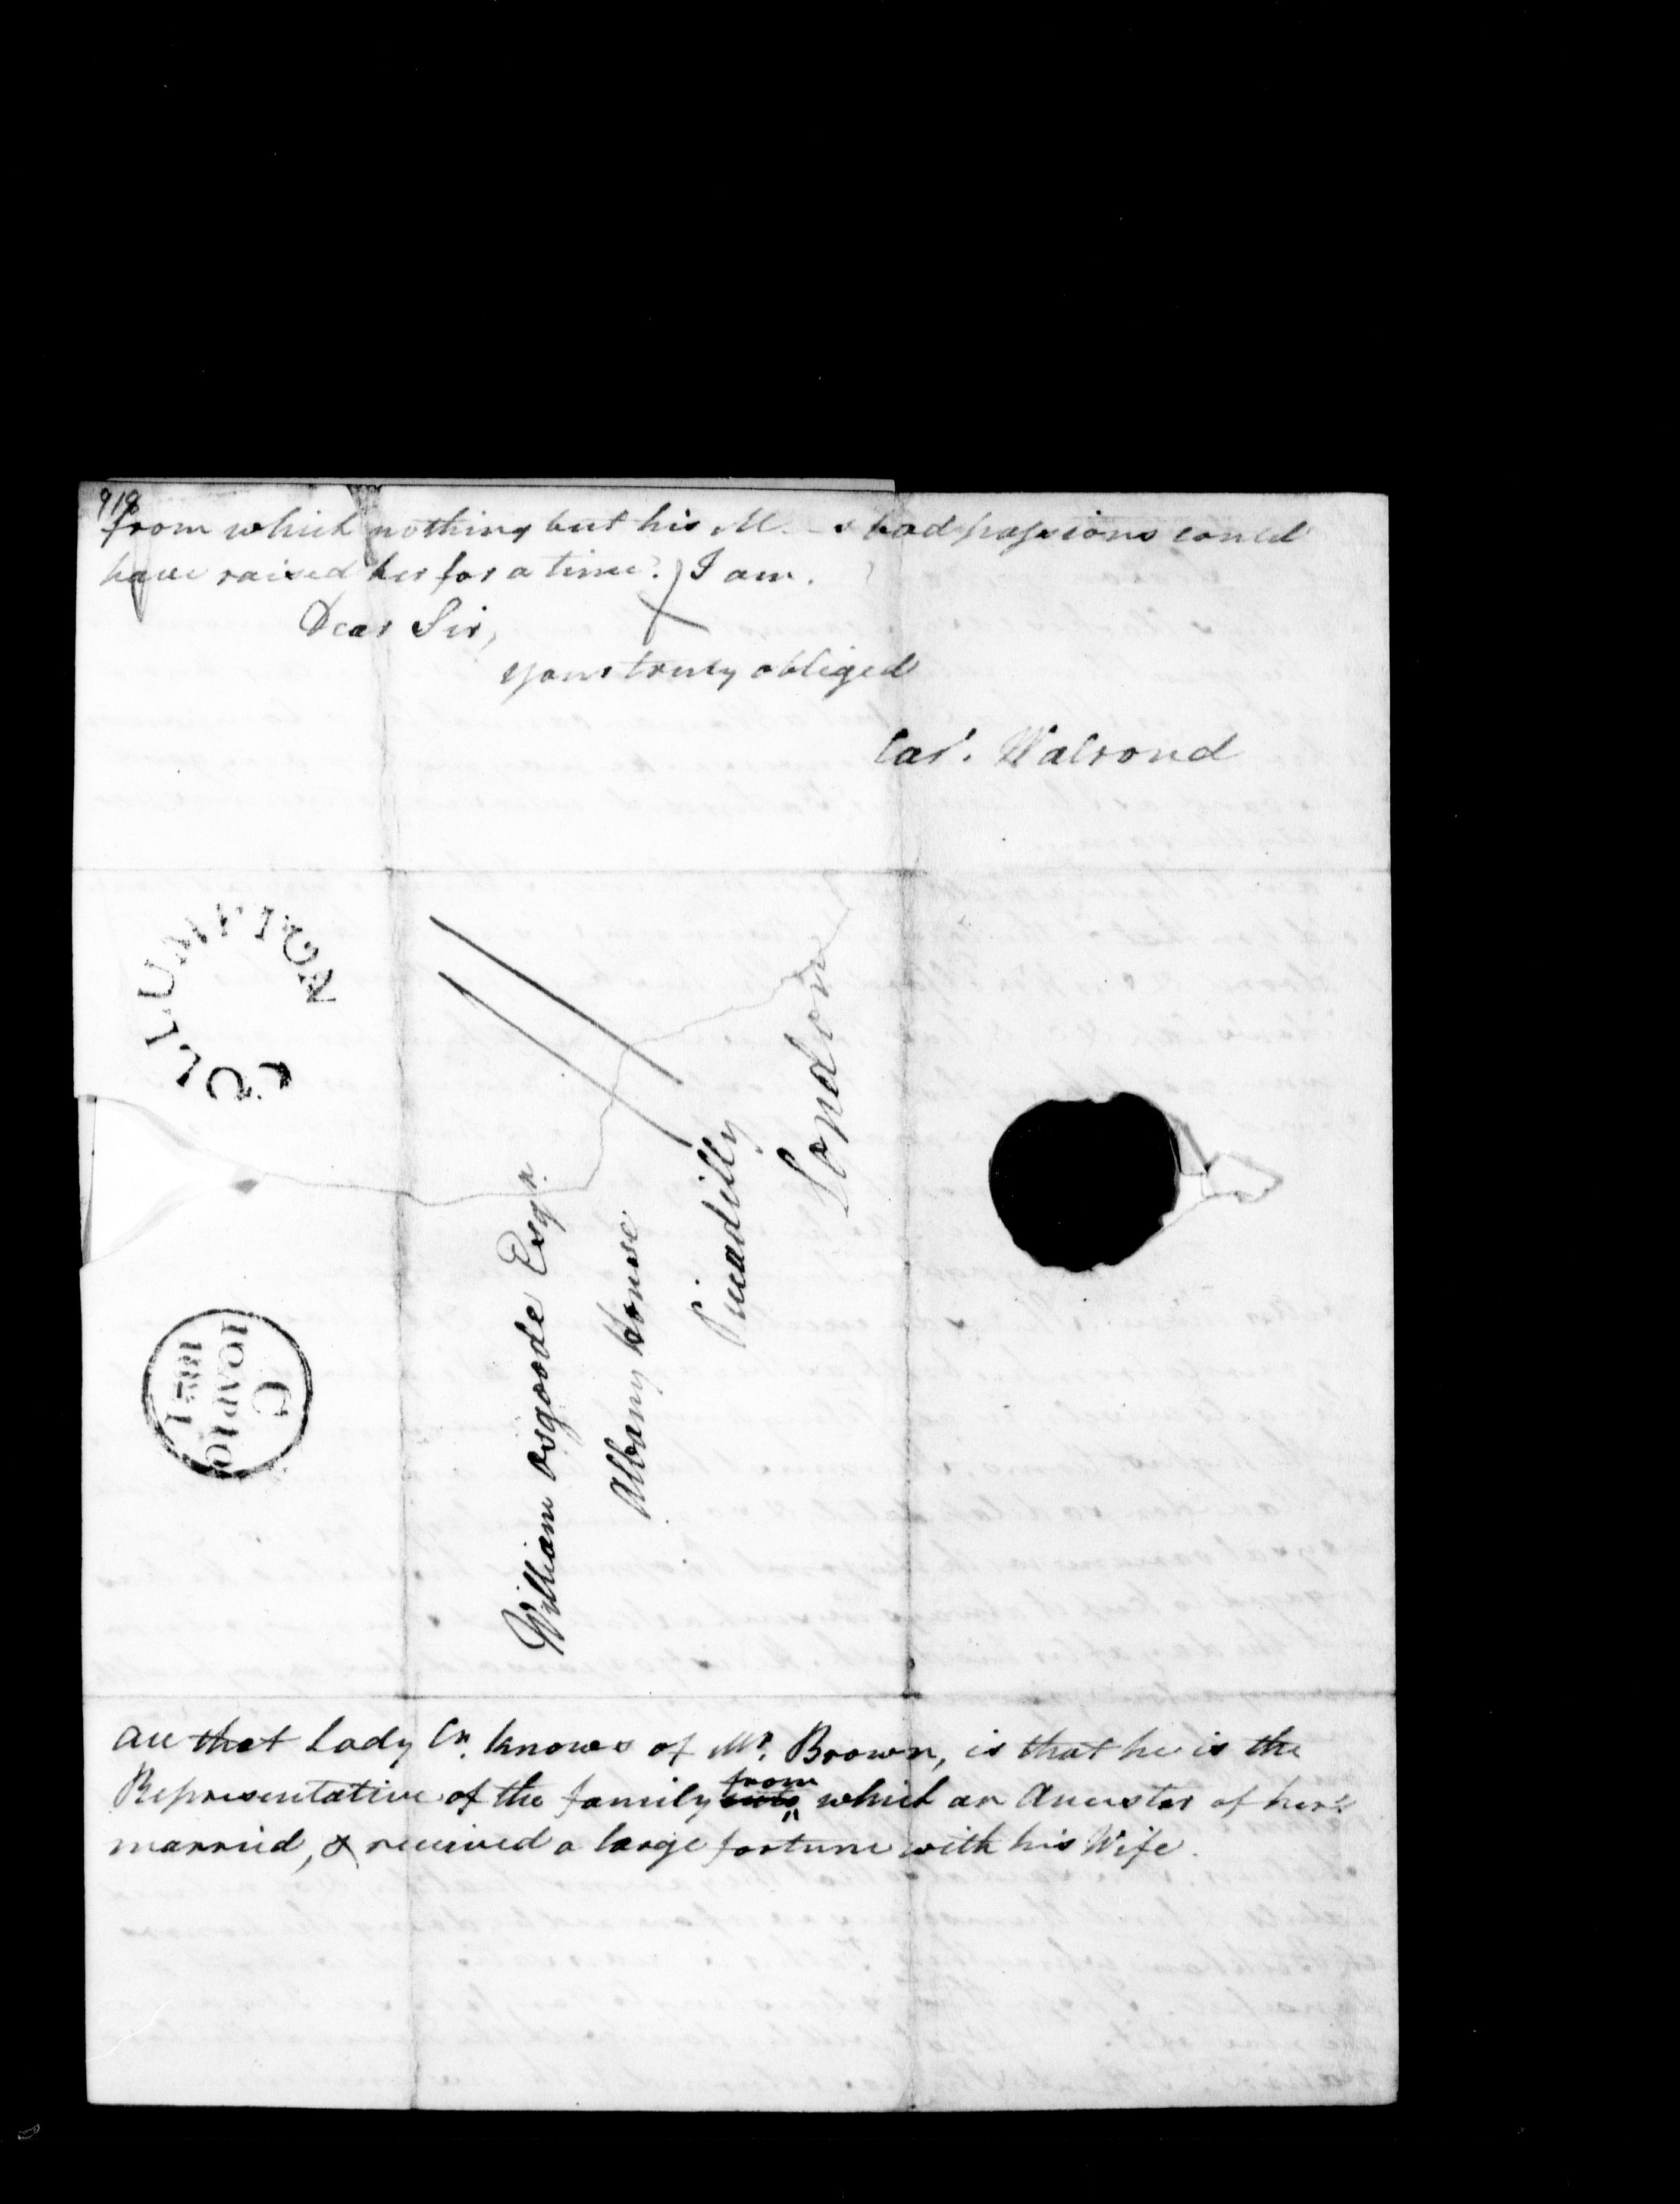 918
from which nothing but his M. - s bad passions could
have raised her for a time?) I am.
Dear Sir,
yours truly obliged
Car. Walrond
COLLUMPTON
C
10 AP 10
1821
William Osgoode Esqr.
Albany House
Piccadilly
London
All that Lady Cn. knows of Mr. Brown, is that he is the
Representative of the family from which an Ancestor of her's
married, & received a large fortune with his Wife.